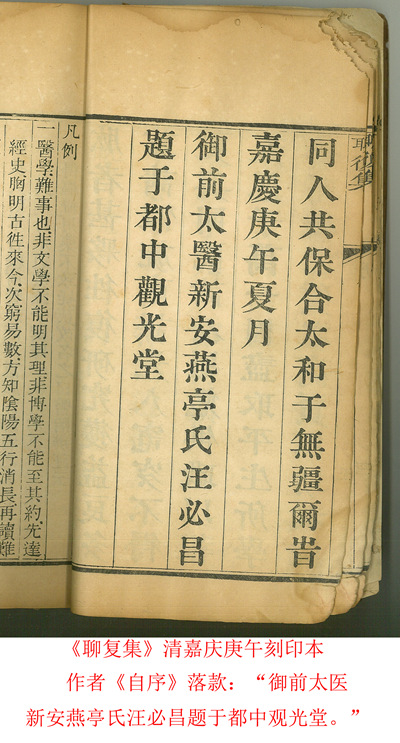 聊復集
同人共保合太和于無疆爾旹
嘉慶庚午夏月
御前太醫新安燕亭氏汪必昌
題于都中觀光堂
凡例
一醫學難事也非文學不能明其理非博學不能至其約先達
經史胸明古徃來今次窮易數方知陰陽五行消長再讀難
《聊复集》清嘉庆庚午刻印本
作者《自序》落款：“御前太医
新安燕亭氏汪必昌题于都中观光堂。”